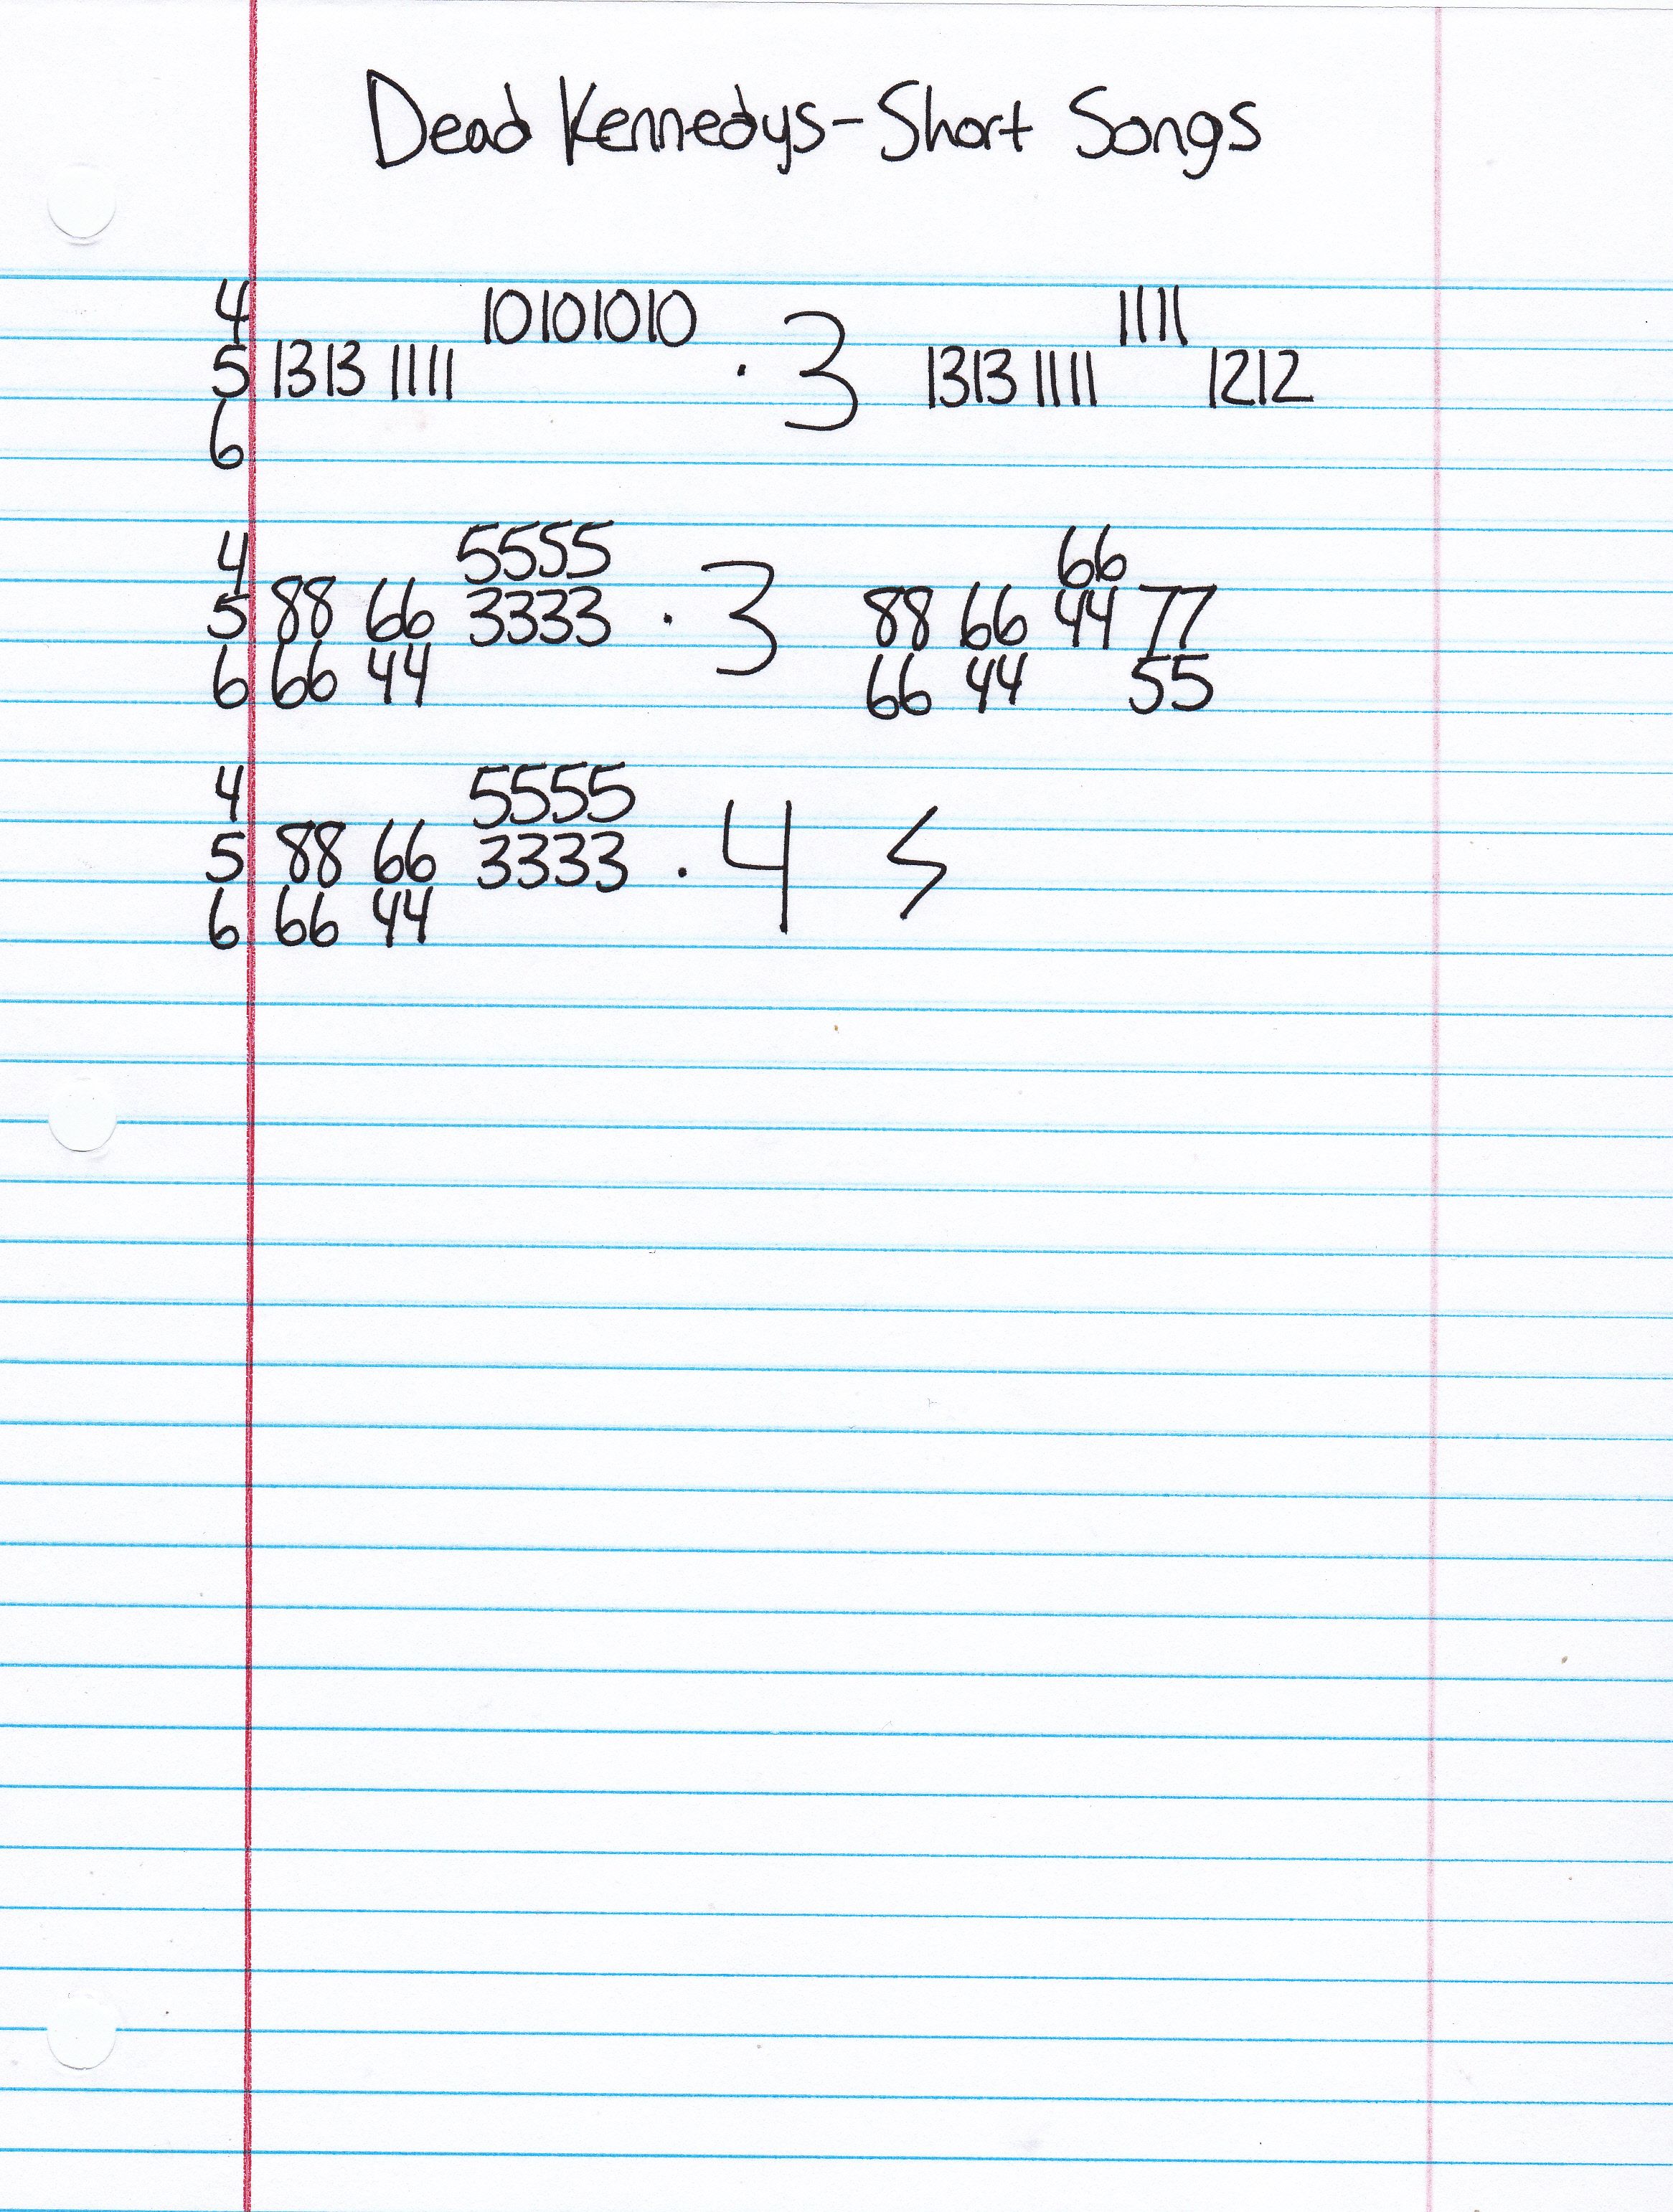 Dead Kennedys - Short Songs
4 10101010 1111
5 1313 1111 · 3 1313 1111 1212
6
4 5555 66
5 88 66 3333 · 3 88 66 44 77
6 66 44 66 44 55
4 5555
5 88 66 3333 · 4
6 66 44